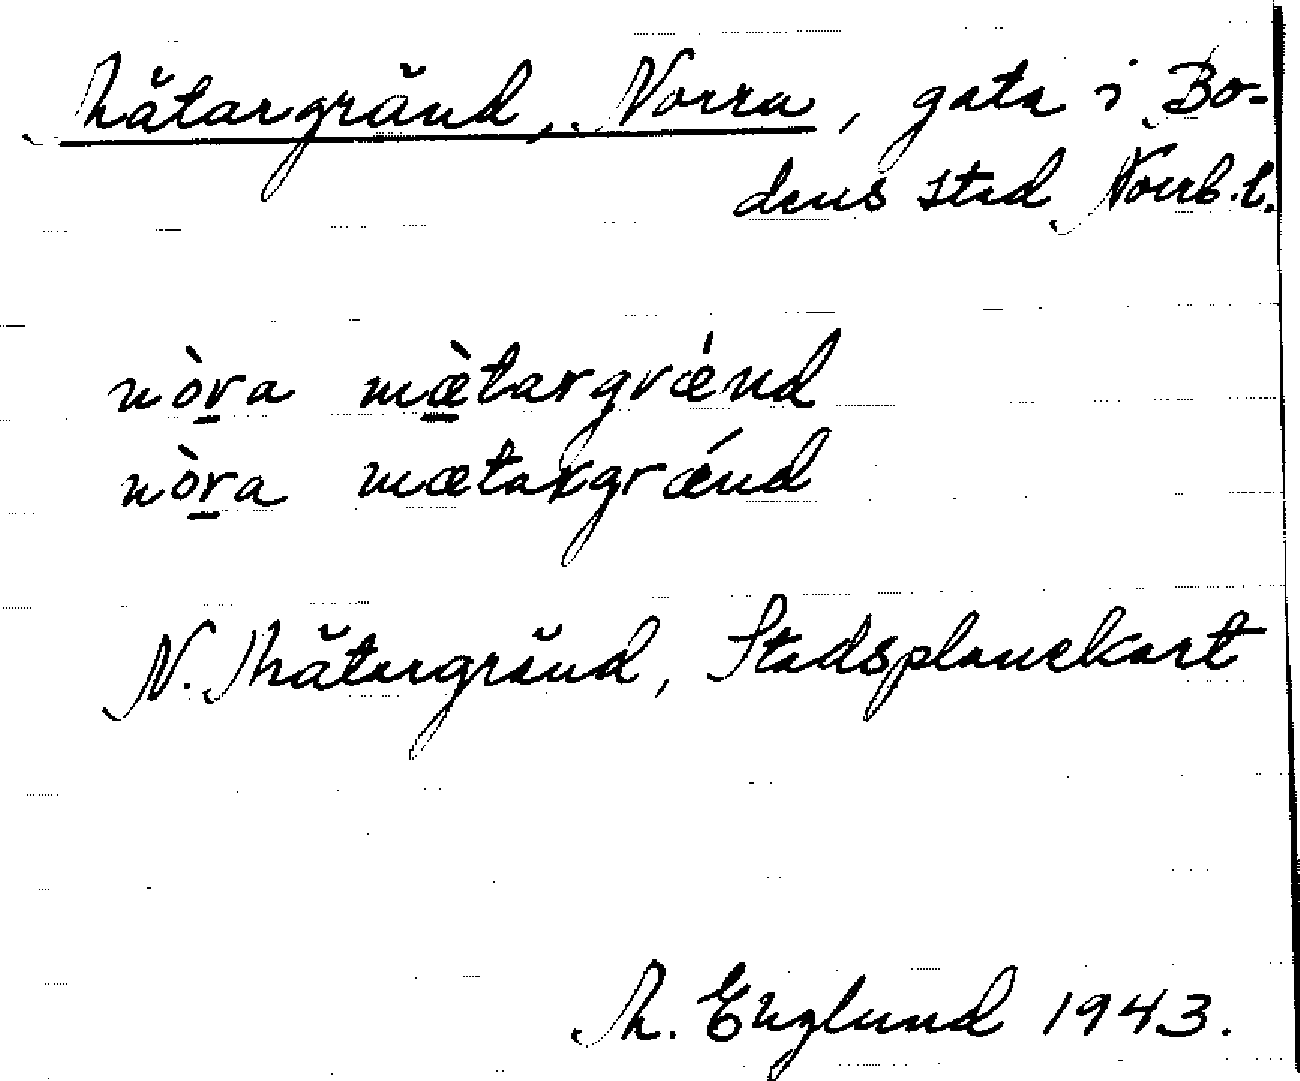 Mätargränd, Norra, gata i Bo-
dens stad Norrb. l.
nòr̲a mæ̲̀targrǽnd
nòr̲a mætargrǽnd
N. Mätargränd, Stadsplanekart
M. Englund 1943.